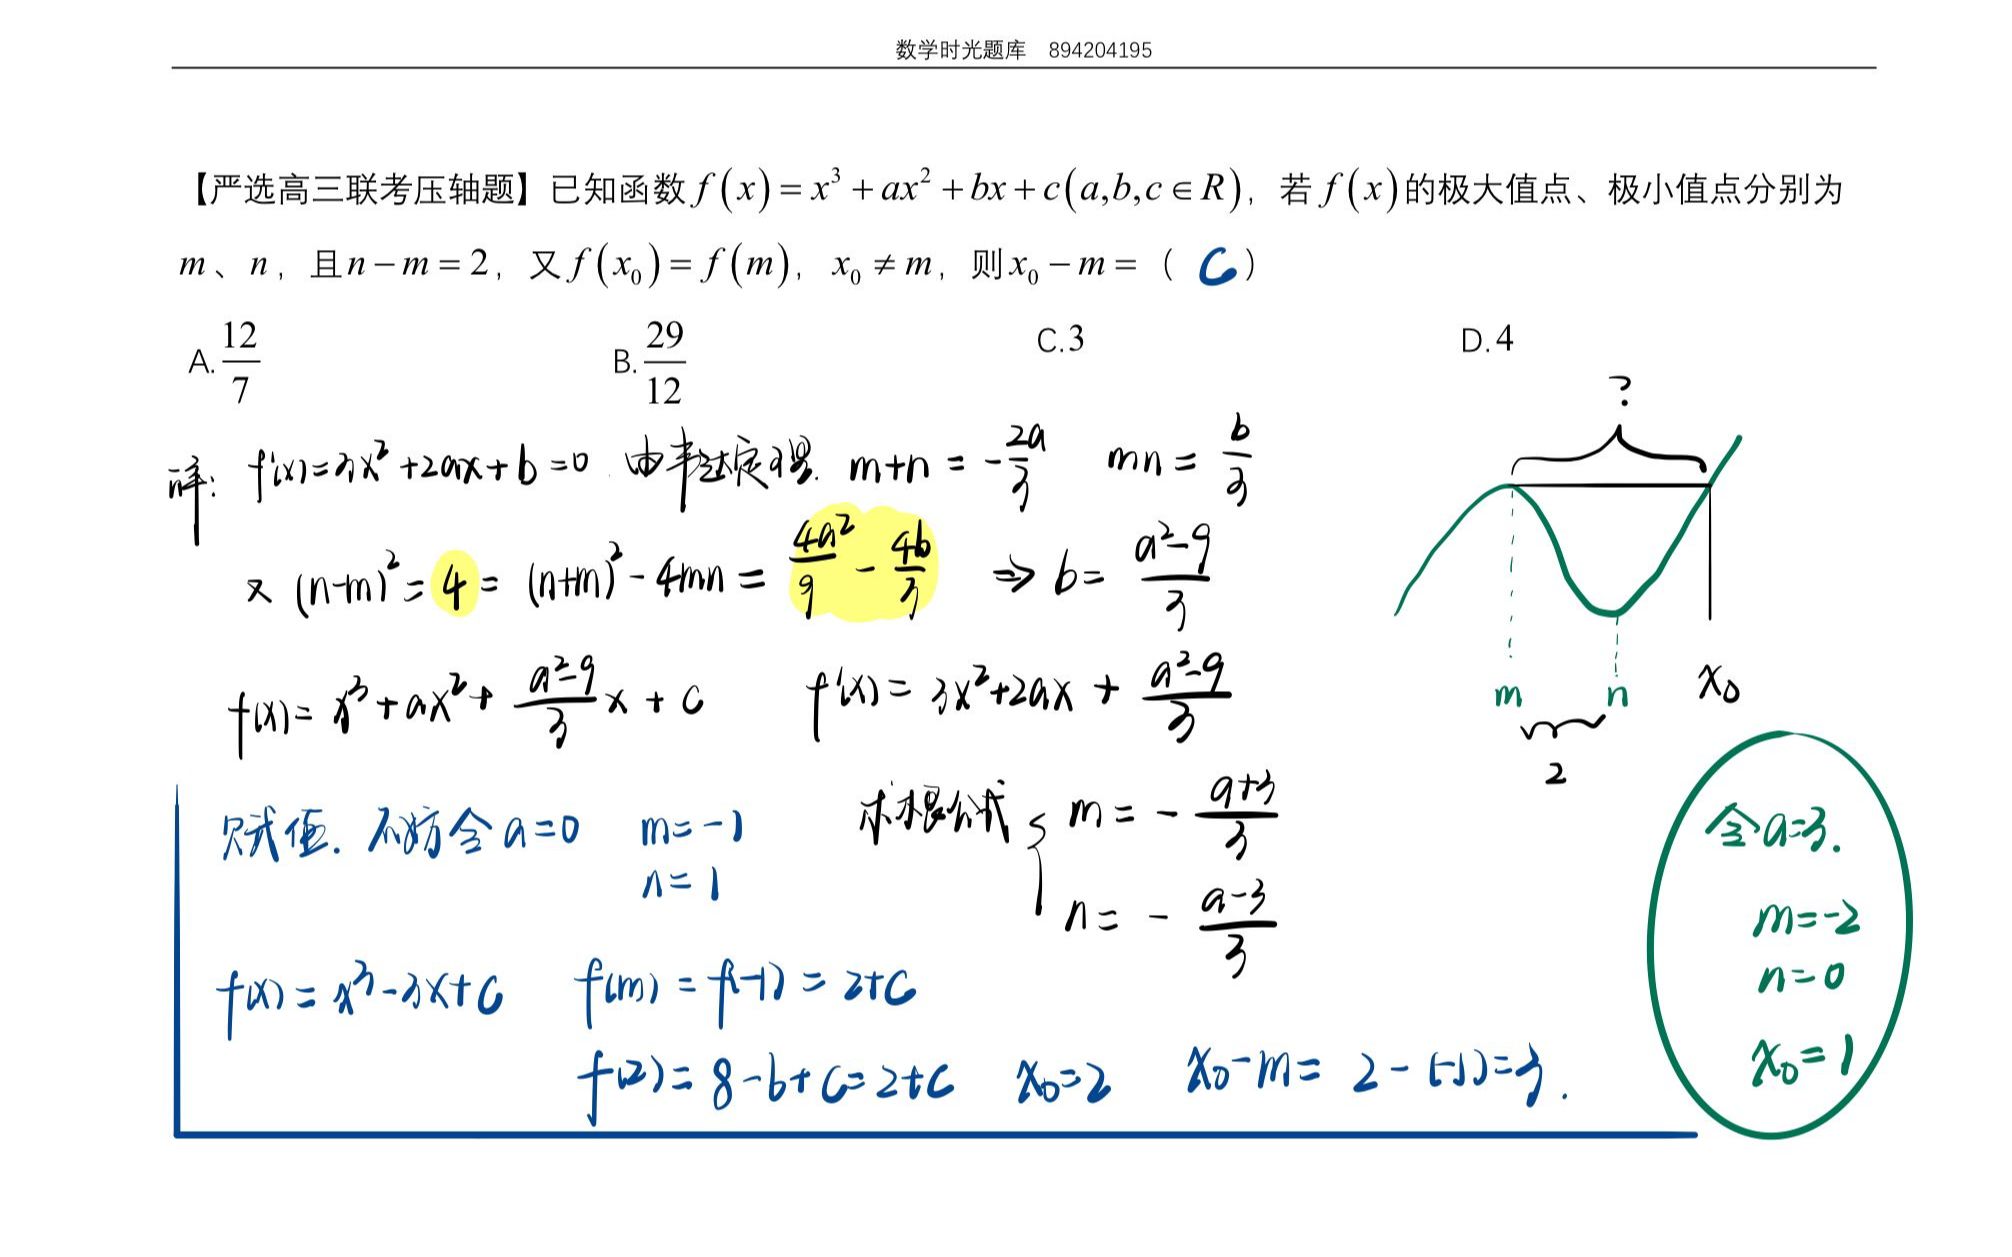 数学时光题库 894204195
【严选高三联考压轴题】已知函数 f(x)=x³+ax²+bx+c(a,b,c∈R)，若 f(x) 的极大值点、极小值点分别为
m、n，且 n−m=2，又 f(x₀)=f(m)，x₀≠m，则 x₀−m=（ C ）
A. 12/7 B. 29/12 C.3 D.4
?
详: f'(x)=3x²+2ax+b=0 由韦达定理. m+n = -2a/3 mn = b/3
又 (n-m)² = 4 = (n+m)² - 4mn = 4a²/9 - 4b/3 ⇒ b = (a²-9)/3
f(x) = x³+ax²+ (a²-9)/3 x + c f'(x) = 3x²+2ax + (a²-9)/3
m n x₀
2
赋值. 不妨令 a=0 m=-1
n=1
求根公式 { m = - (a+3)/3
n = - (a-3)/3
f(x) = x³-3x+c f(m) = f(-1) = 2+c
f(2) = 8-6+c=2+c x₀=2 x₀-m = 2-(-1)=3.
令a=3.
m=-2
n=0
x₀=1